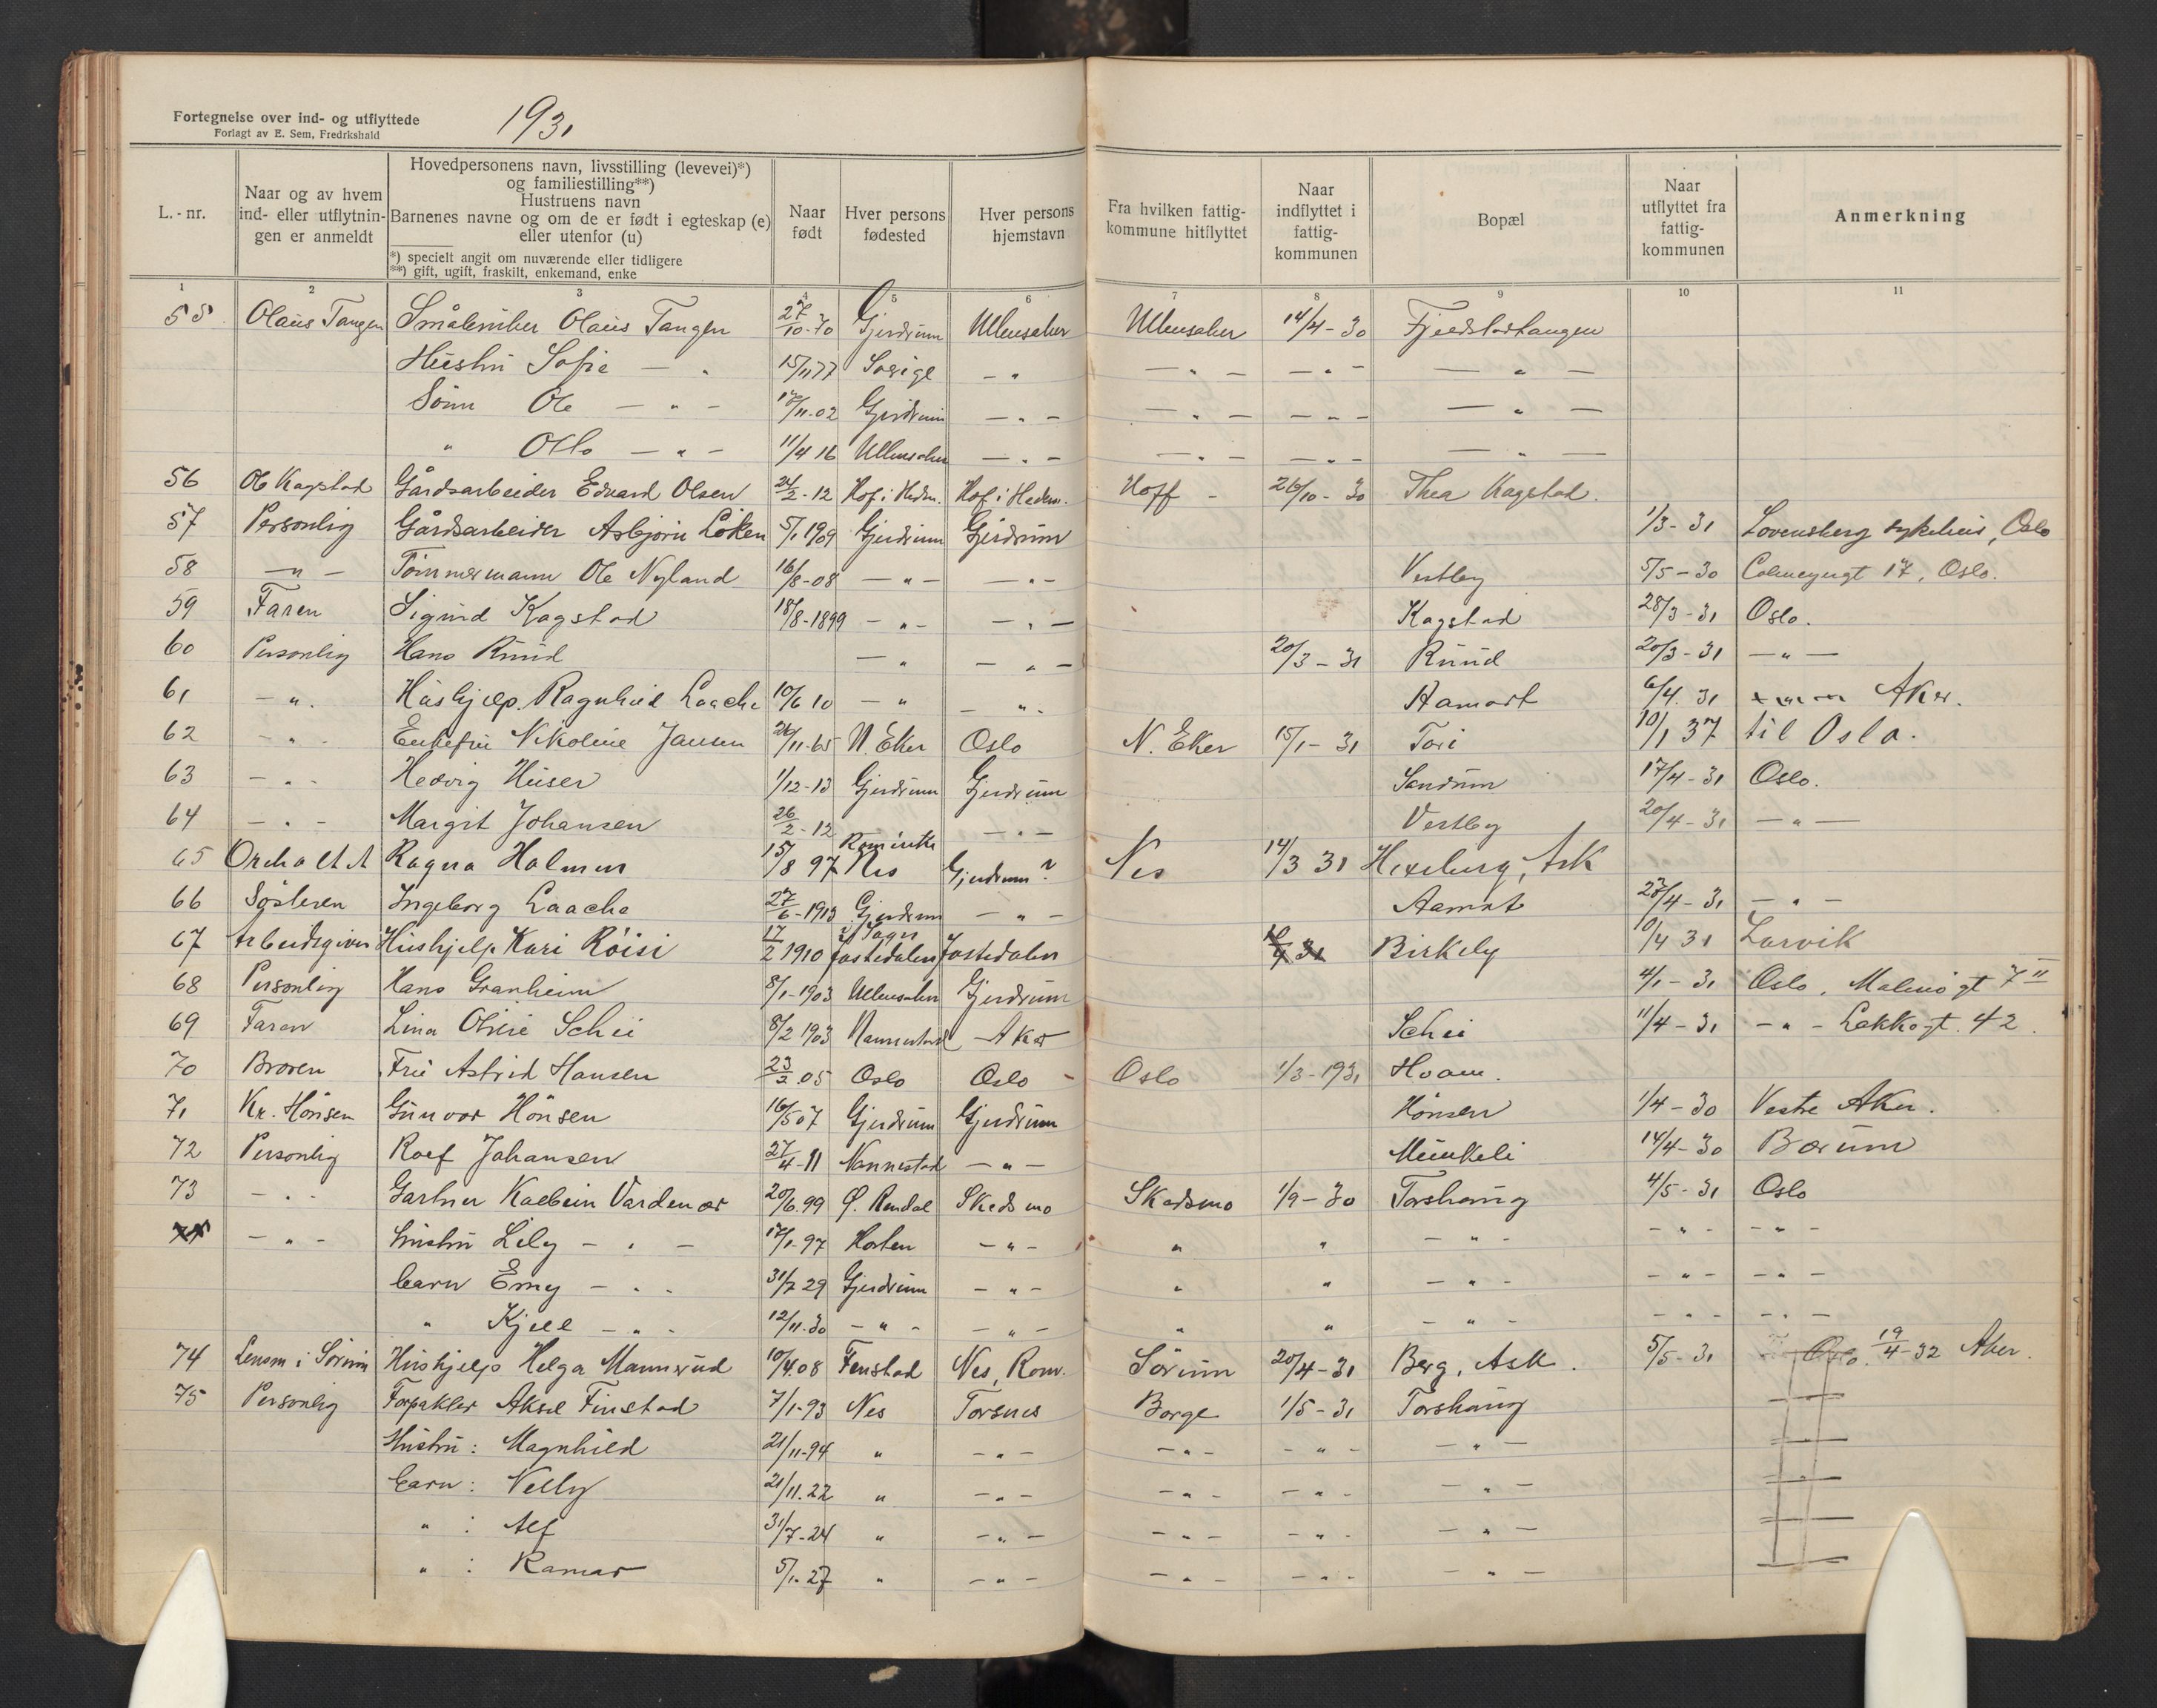 Fortegnelse over ind- og utflyttede
Forlagt av E. Sem, Fredrkshald
1931
L.-nr. | Naar og av hvem ind- eller utflytningen er anmeldt | Hovedpersonens navn, livsstilling (levevei)*) og familiestilling**) Hustruens navn Barnenes navne og om de er født i egteskap (e) eller utenfor (u) *) specielt angit om nuværende eller tidligere **) gift, ugift, fraskilt, enkemand, enke | Naar født | Hver persons fødested | Hver persons hjemstavn | Fra hvilken fattigkommune hitflyttet | Naar indflyttet i fattigkommunen | Bopæl | Naar utflyttet fra fattigkommunen | Anmerkning
1 2 3 4 5 6 7 8 9 10 11
55 Olaus Tangen Småbruker Olaus Tangen 27/10-70 Gjerdrum Ullensaker Ullensaker 14/4-30 Fjeldstadtangen
Hustru Sofie — " 15/11 77 Sverige — " — " — — " — — " —
Sønn Ole — " — 17/11-02 Gjerdrum — " — — " — — " — — " —
" Otto — " — 11/4 16 Ullensaker — " — — " — — " — — " —
56 Ole Kagstad Gårdsarbeider Edvard Olsen 24/2-12 Hof i Hedm. Hof i Hedm. Hoff - 26/10-30 Thea Kagstad.
57 Personlig Gårdsarbeider Asbjørn Løken 5/1 1909 Gjerdrum Gjerdrum 1/3-31 Lovensberg sykehus, Oslo
58 — " — Tømmermann Ole Nyland 16/8-08 — " — — " — Vestby 5/5-30 Colmeyrgt 17, Oslo.
59 Faren Sigurd Kagstad 18/8-1899 — " — — " — Kagstad 28/3-31 Oslo.
60 Personlig Hans Ruud — " — " — 20/3-31 Ruud 20/3-31 — " —
61 — " . Hushjelp. Ragnhild Laache 10/6 10 — " — " . Aamodt 6/4. 31 Aker.
62 — " - Enkefru Nikoline Jansen 26/11-65 N. Eker Oslo N. Eker 15/1-31 Tori 10/1 37 til Oslo.
63 — " - Hedvig Huser 1/12-13 Gjerdrum Gjerdrum Sandum 17/4-31 Oslo.
64 — " - Margit Johansen 26/2-12 — " — Vestby 20/4-31 — " —
65 Ragna Holmen 15/8 97 Romerike Nes Gjerdrum? Nes 14/3 31 Hexeberg, Ask
66 Søsteren Ingeborg Laache 27/6-1913 Gjerdrum — " — Aamot 23/4-31 — " —
67 Arbeidsgiver Hushjelp Kari Röisi 17/2 1910 i Sogn Jostedalen Jostedalen Birkely 10/4 31 Larvik
68 Personlig Hans Granheim 8/1-1903 Ullensaker Gjerdrum 4/1-31 Oslo, Malmøgt 7 II
69 Faren Lina Olivie Schei 8/2 1903 Nannestad Aker Schei 11/4-31 — " — Lakkegt. 42.
70 Broren Fru Astrid Hansen 23/2 05 Oslo Oslo Oslo 1/3-1931 Hvam.
71 Kr. Hönsen Gunvor Hönsen 16/5 07 Gjerdrum Gjerdrum Hönsen 1/4-30 Vestre Aker.
72 Personlig Rolf Johansen 27/4-11 Nannestad — " — Munkeli 14/4-30 Bærum
73 — " - Gartner Kolbein Vardenær 20/6.99 Ø. Rendal Skedsmo Skedsmo 1/9-30 Torshaug 4/5-31 Oslo
— " - hustru Lily — " — 17/1-97 Horten — " — " " — " — — " — — " —
barn Emy — " - 31/7 29 Gjerdrum — " — " " — " — — " — — " —
" Kjell — " - 12/11.30 — " — — " — " " — " — — " — — " —
74 Lensm i Sörum Hushjelp Helga Mannerud 10/4.08 Fenstad Nes, Rom. Sörum 20/4-31 Berg, Ask. 5/5-31 Oslo. 19/4-32 Aker.
75 Personlig Forpakter Aksel Finstad 7/1-93 Nes Torsnes Borge 1/5-31 Torshaug
Hustru: Magnhild 21/11-94 " — " — — " — — " — — " —
barn: Nelly 21/11.22 " — " — — " — — " — — " —
" : Alf 31/7-24 " — " — — " — — " — — " —
" : Ramar 5/1-27 " — " — — " — — " — — " —